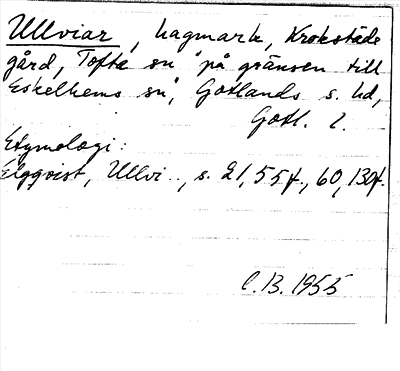 Ullviar, hagmark, Krokstäde
gård, Tofta sn "på gränsen till
Eskelhems sn", Gotlands s. hd,
Gotl. l.
Etymologi:
Elgqvist, Ullvi.., s. 21, 55 f., 60, 130 f.
C.B. 1955